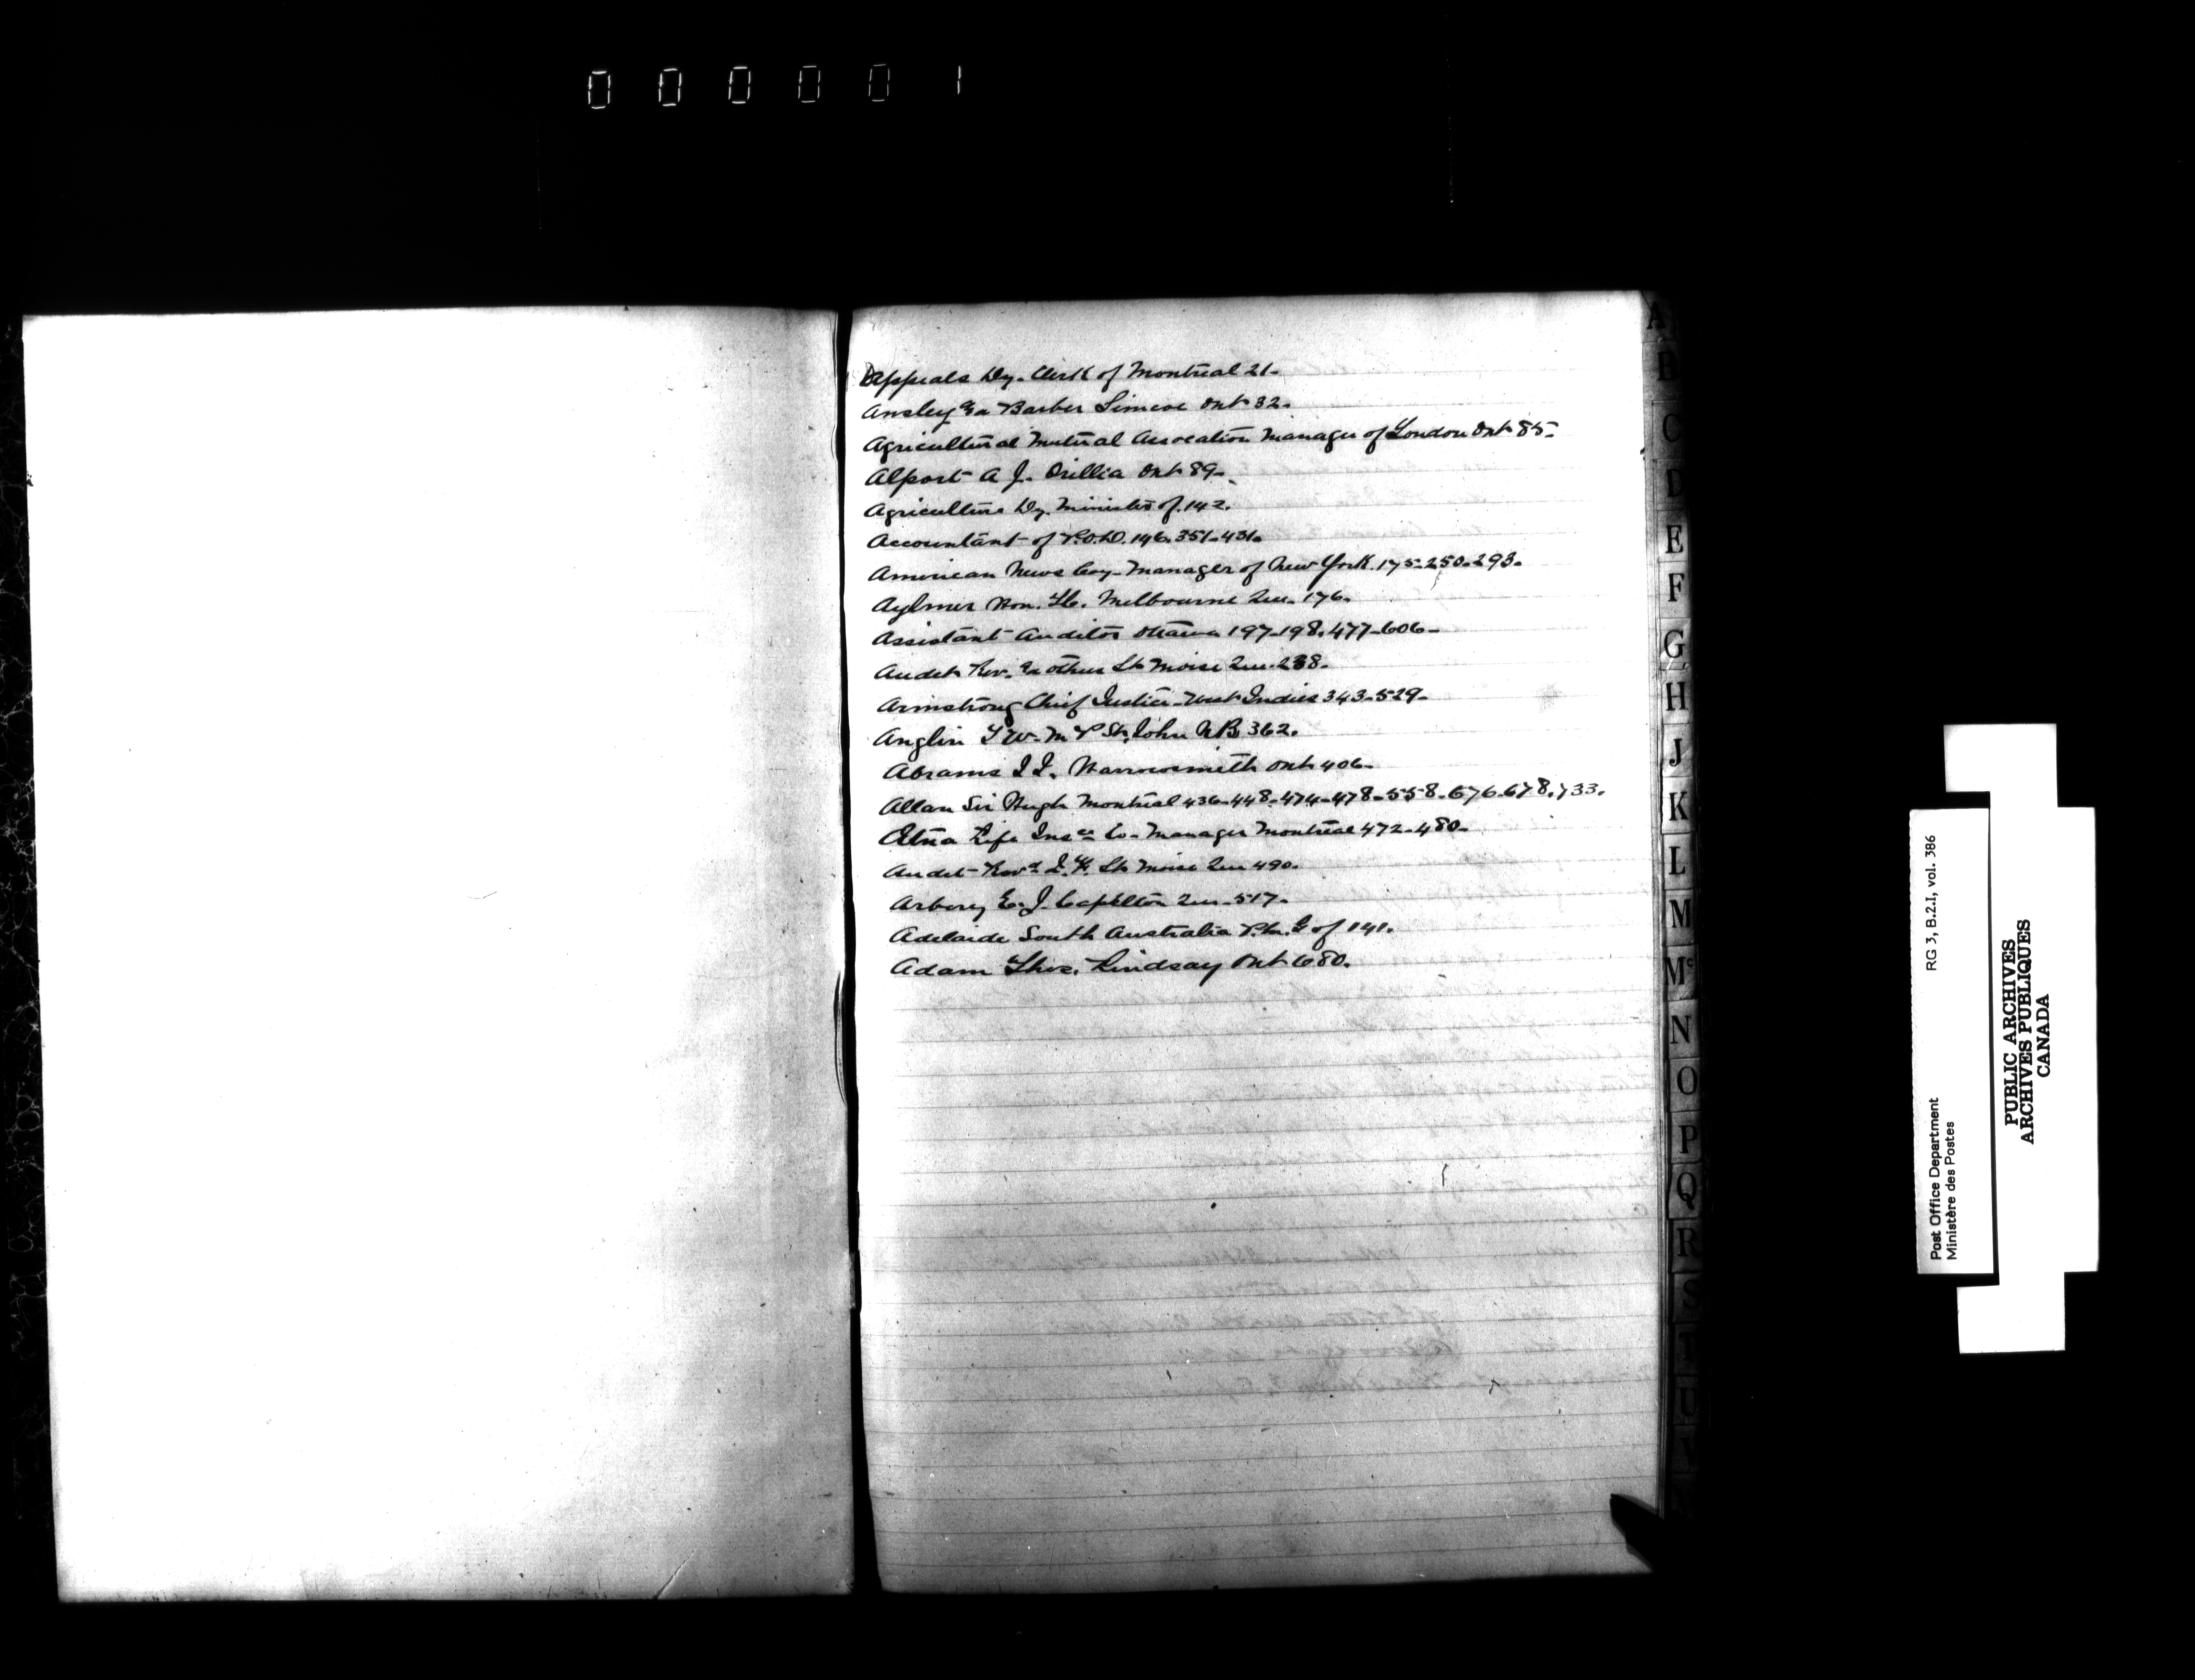 000001
Appeals Dy. Clerk of Montreal 21.
Ansley & Barber Simcoe Ont 32.
Agricultural Mutual Assocation Manager of London Ont 85-
Alport A J. Orillia Ont 89-
Agriculture Dy. Minister of. 142.
Accountant of P.O.D. 146. 351. 431.
American News Coy. Manager of New York. 175-250.293.
Aylmer Hon. H. Melbourne Que. 176.
Assistant Auditor Ottawa 197-198.477-606-
Audet Rev. & others St Moise Que. 238.
Armstrong Chief Justice-West Indies 343-529-
Anglin T W. M P St. John N B. 362.
Abrams Harrowsmith Ont 406-
Allan Sir Hugh Montreal 436-448-474-478-558-676-678.733.
Ætna Life Insce Co. Manager Montreal 472-480-
Audet Revd St Moise Que 490.
E. J. Capelton Que. 517.
Adelaide South Australia P.M.G of 141.
Adam Thos. Lindsay Ont 680.
A
B
C
D
E
F
G
H
J
K
L
M
Mc
N
O
P
Q
R
S
T
U
V
Post Office Department
Ministère des Postes
RG 3, B.2.I, vol. 386
PUBLIC ARCHIVES
ARCHIVES PUBLIQUES
CANADA